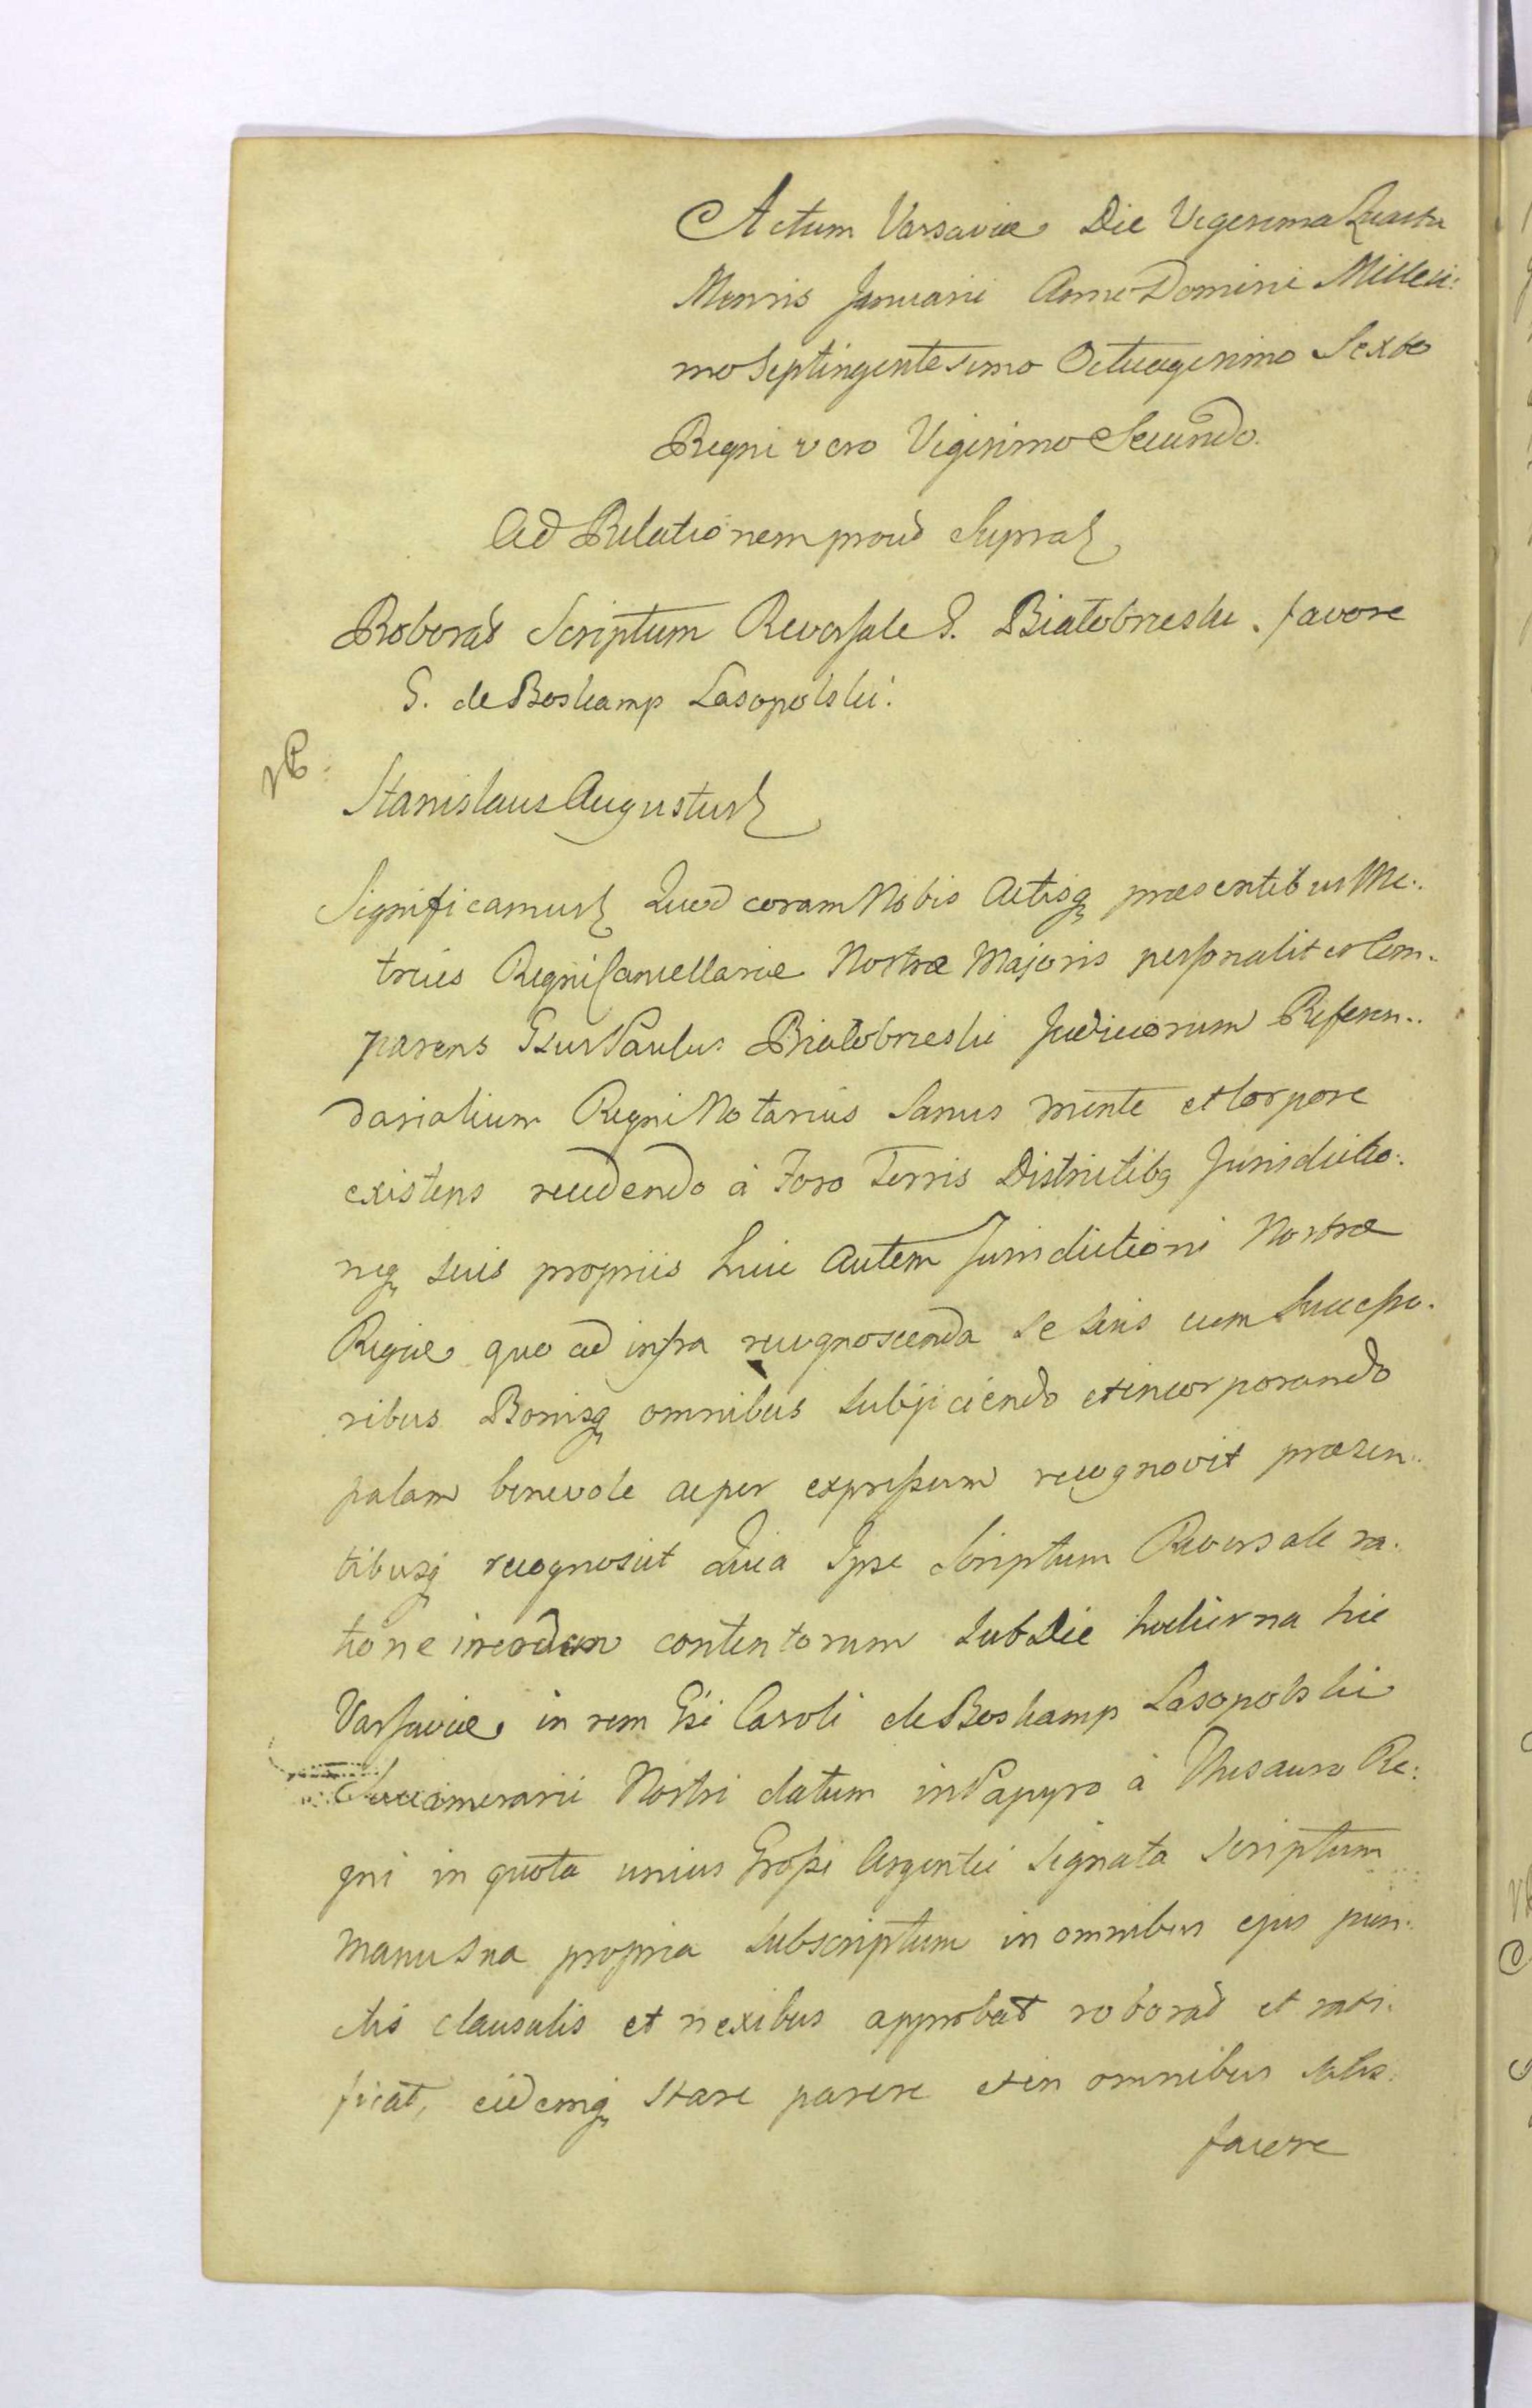 Actum Varsaviæ Die Vigesima Quarta
Mensis Januarii Anno Domini Millesi:
mo Septingentesimo Octuagesimo Sexto
Regni vero Vigesimo Secundo.
Ad Relationem prout Supra
Roborat Scriptum Reversale G. Białobrzeski. favore
G. de Boskamp Lasopolski.
Stanislaus Augustus
Significamus Quod coram Nobis Actisq præsentibus Me..
trices Regni Cancellariæ Nostræ Majoris personaliter Com..
parens Gsus Paulus Białobrzeski Judiciorum Referen..
darialium Regni Notarius Sanus mente et Corpore
existens recedendo à Foro Terris Districtibq Jurisdictio:
neq suis propriis huic autem Jurisdictioni Nostræ
Regiæ quo ad infra recognoscenda se suis cum Successo.
ribus Bonisq omnibus subjiciendo et incorporando
palam benevole ac per expressum recognovit præsen..
tibusq recognoscit Quia Ipse Scriptum Reversale ra.
tione in eodem contentorum sub Die hodierna hic
Varsaviæ in rem Gsi Caroli de Boskamp Lasopolski
Nostri datum in Papyro à Thesauro Re:
gni in quota unius Grossi Argentei signata Scriptum
manu sua propria subscriptum in omnibus ejus pun.
ctis clausulis et nexibus approbat roborat et rati.
ficat, eidemq stare parere et in omnibus satis.
facere